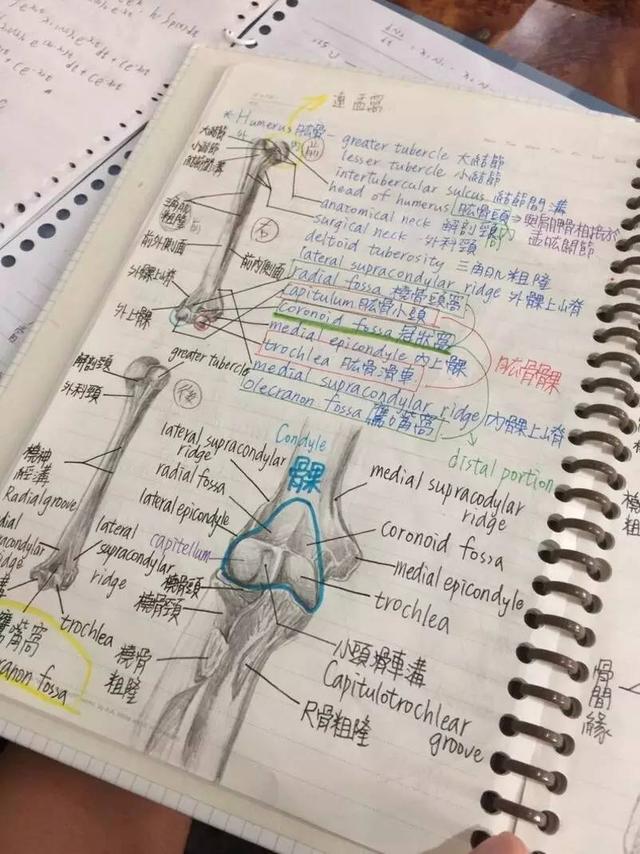 * Humerus 肱骨 -
greater tubercle 大結節
lesser tubercle 小結節
intertubercular sulcus 結節間溝
head of humerus 肱骨頭
anatomical neck 解剖頸
surgical neck 外科頸
deltoid tuberosity 三角肌粗隆
lateral supracondylar ridge 外髁上嵴
radial fossa 橈骨頭窩
Capitulum 肱骨小頭
Coronoid fossa 冠狀窩
medial epicondyle 內上髁
trochlea 肱骨滑車
medial supracondylar ridge 內髁上嵴
olecranon fossa 鷹嘴窩
肱骨髁
distal portion
大結節
小結節
外
內
前
右
前外側面
前內側面
外髁上嵴
外上髁
解剖頸
外科頸
greater tubercle
後
橈神
經溝
Radial groove
lateral
supracondylar
ridge
trochlea
鷹嘴窩
Condyle
髁
lateral supracondylar
ridge
radial fossa
lateral epicondyle
capitellum
橈骨頭
橈骨頸
橈骨
粗隆
medial supracodylar
ridge
coronoid fossa
medial epicondyle
trochlea
小頭滑車溝
Capitulotrochlear
groove
尺骨粗隆
骨間緣